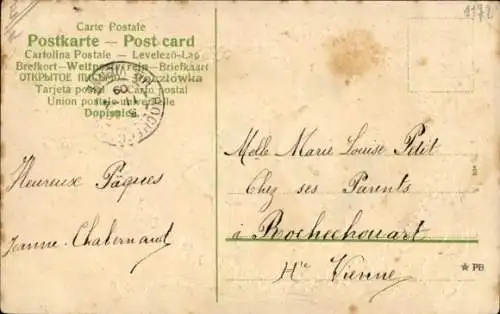 Carte Postale
Postkarte — Post card
Cartolina Postale — Levelező-Lap
Brefkort—Weltpostverein—Briefkaart
ОТКРЫТОЕ ПИСЬМО — Pocztówka
Tarjeta postal — Carto postal
Union postale universelle
Dopisnice
Heureux Pâques
Jeanne-Chabernaud
Melle Marie Louise Petit
Chez ses Parents
à Rochechouart
Hte Vienne
★ PB